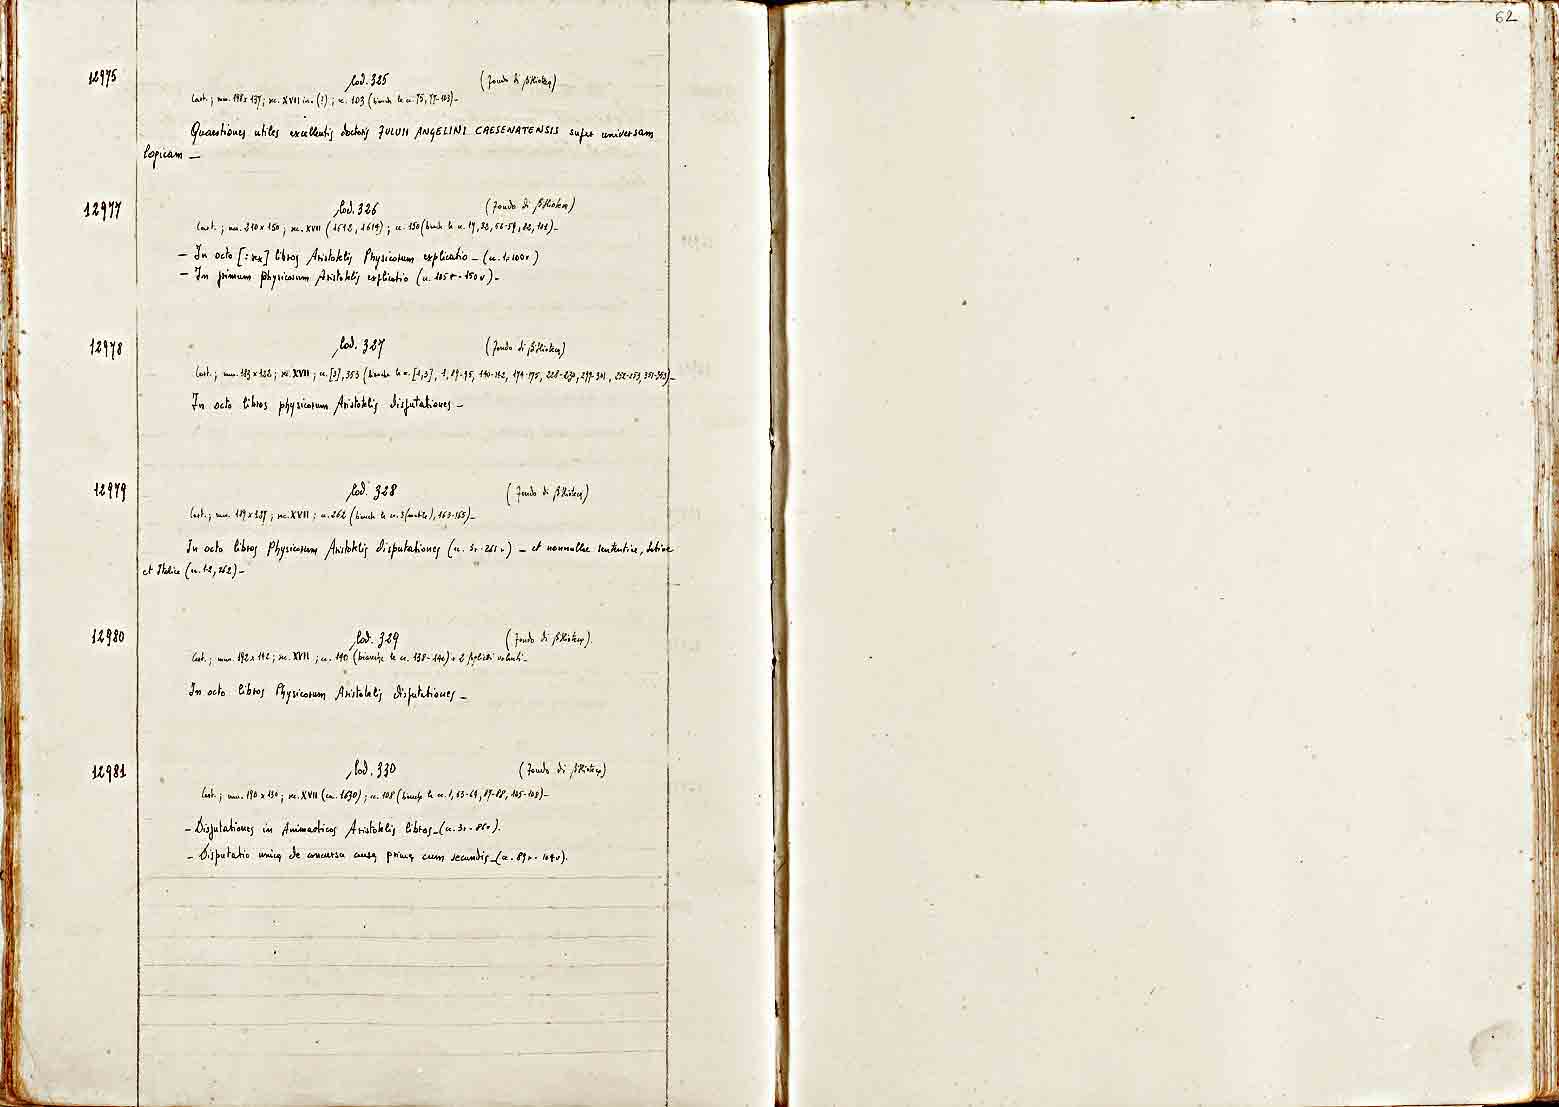 62
12975 Cod. 325 (Fondo di Biblioteca)
Cart.; mm. 198x137; sec. XVII in. (?); c. 103 (bianche le c. 75, 77-103)_
Quaestiones utiles excellentis doctoris JULII ANGELINI CAESENATENSIS super universam
logicam _
12977 Cod. 326 (Fondo di Biblioteca)
Cart.; mm. 210x150; sec. XVII (1612, 1619); c. 150 (bianche le c. 19, 22, 56-59, 82, 102)_
_ In octo [: sex] libros Aristotelis Physicorum explicatio _ (c. 1r-100v)
_ In primum physicorum Aristotelis explicatio (c. 105r-150v)_
12978 Cod. 327 (Fondo di Biblioteca)
Cart.; mm. 183x122; sec. XVII; c. [3], 353 (bianche le c. [2,3], 1, 89-95, 140-142, 174-175, 228-230, 299-301, 252-253, 351-353)_
In octo libros physicorum Aristotelis disputationes _
12979 Cod. 328 (Fondo di Biblioteca)
Cart.; mm. 189x137; sec. XVII; c. 262 (bianche le c. 163-165)_
In octo libros Physicorum Aristotelis disputationes (c. 3r-261v) _ et nonnullae sententiae, latine
et Italice (c. 1-2, 262)_
12980 Cod. 329 (Fondo di Biblioteca).
Cart.; mm. 192x142; sec. XVII; c. 140 (bianche le c. 138-140) + 2 foglietti volanti_
In octo libros Physicorum Aristotelis disputationes _
12981 Cod. 330 (Fondo di Biblioteca)
Cart.; mm. 190x130; sec. XVII (ca. 1630); c. 108 (bianche le c. 1, 63-64, 87-88, 105-108)_
_ Disputationes in Animasticos Aristotelis libros _ (c. 3r-86v).
_ Disputatio unica de concursu causae primae cum secundis _ (c. 89r-104v).